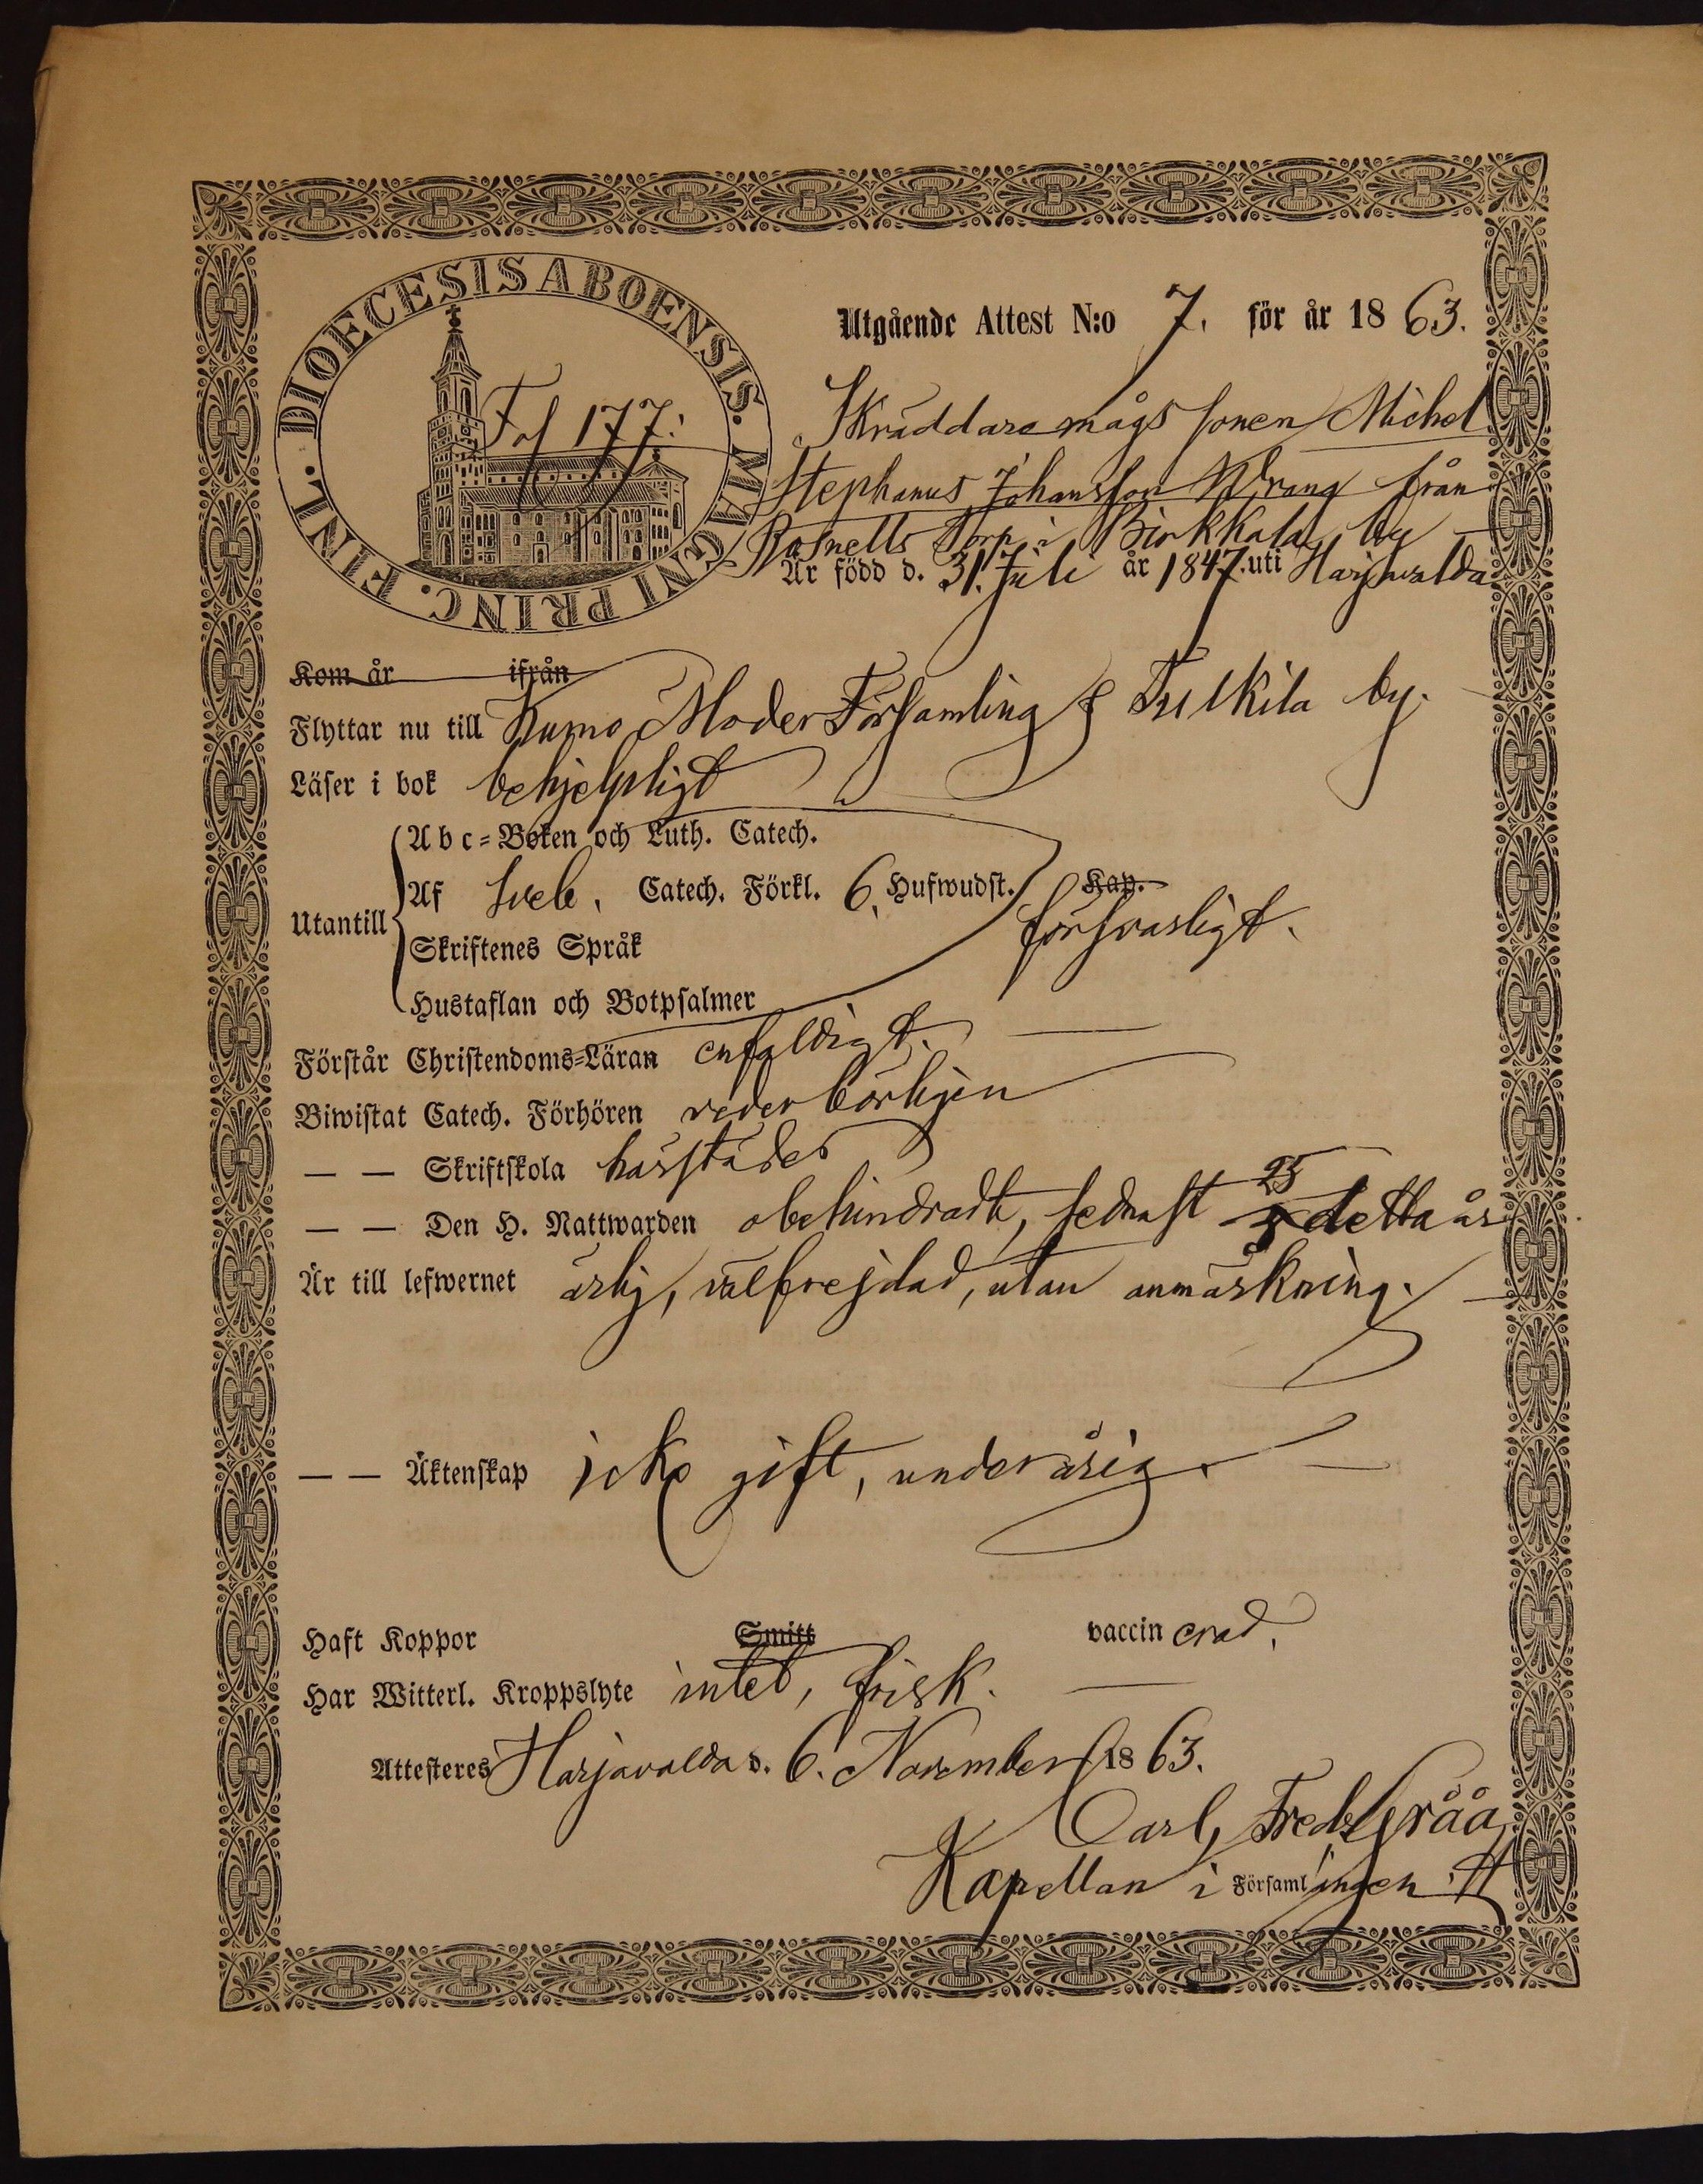 DIOECESIS ABOENSIS. MAGNI PRINC. FINL.
Fol 177.
Utgående Attest N:o 7. för år 1863.
Skräddare mågs sonen Michel
Stephanus Johansson Wrang från
Torp i Birkkala by
Är född d. 31. Juli år 1847. uti Harjavalda
Kom år ifrån
Flyttar nu till Kumo Moder Församling & Tulkila by.
Läser i bok behjelpligt
Utantill
Abc-Boken och Luth. Catech.
Af Sveb. Catech. Förkl. 6. Hufwudst. Kap.
försvarligt.
Skriftenes Språk
Hustaflan och Botpsalmer
Förstår Christendoms-Läran enfaldigt.
Biwistat Catech. Förhören vederbörligen
— — Skriftskola härstädes
— — Den H. Nattwarden obehindradt, sednast 25/5 detta år
Är till lefwernet ärlig, välfrejdad, utan anmärkning.
— — Äktenskap icke gift, underårig.
Haft Koppor Smitt vaccinerad.
Har Witterl. Kroppslyte intet, frisk.
Attesteres Harjavalda d. 6. November 1863.
Carl Fredr Gråå
Kapellan i Församlingen